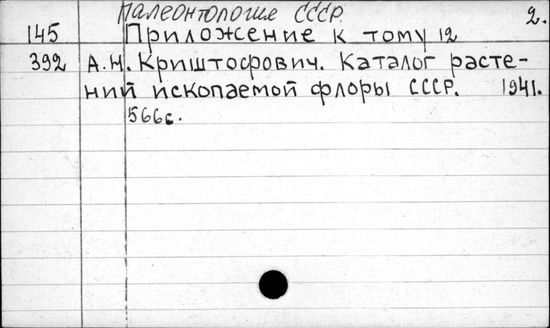 Палеонтология СССР. 2.
145 Приложение к тому 12
392 А.Н. Криштофович. Каталог расте-
ний ископаемой флоры СССР. 1941.
566 с.